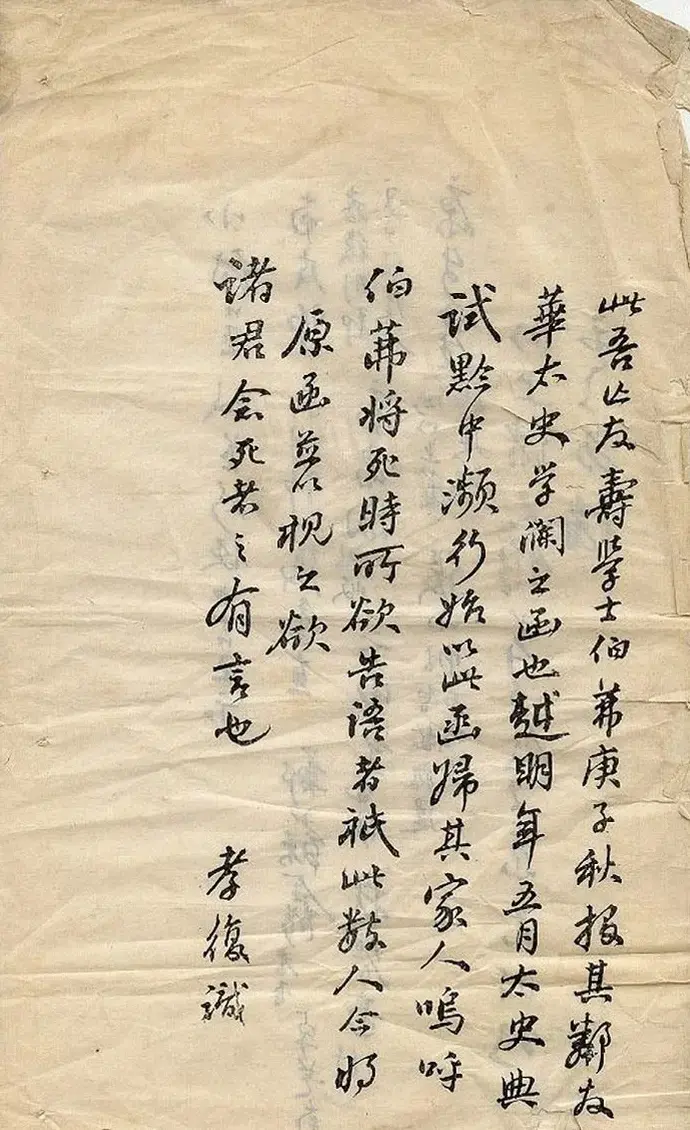 此吾亡友壽學士伯茀庚子秋报其鄰友
華太史学瀾之函也越明年五月太史典
試黔中濒行始以此函歸其家人嗚呼
伯茀将死時所欲告语者祇此数人今将
原函並以枧之欲
諸君念死者之有言也
孝復識